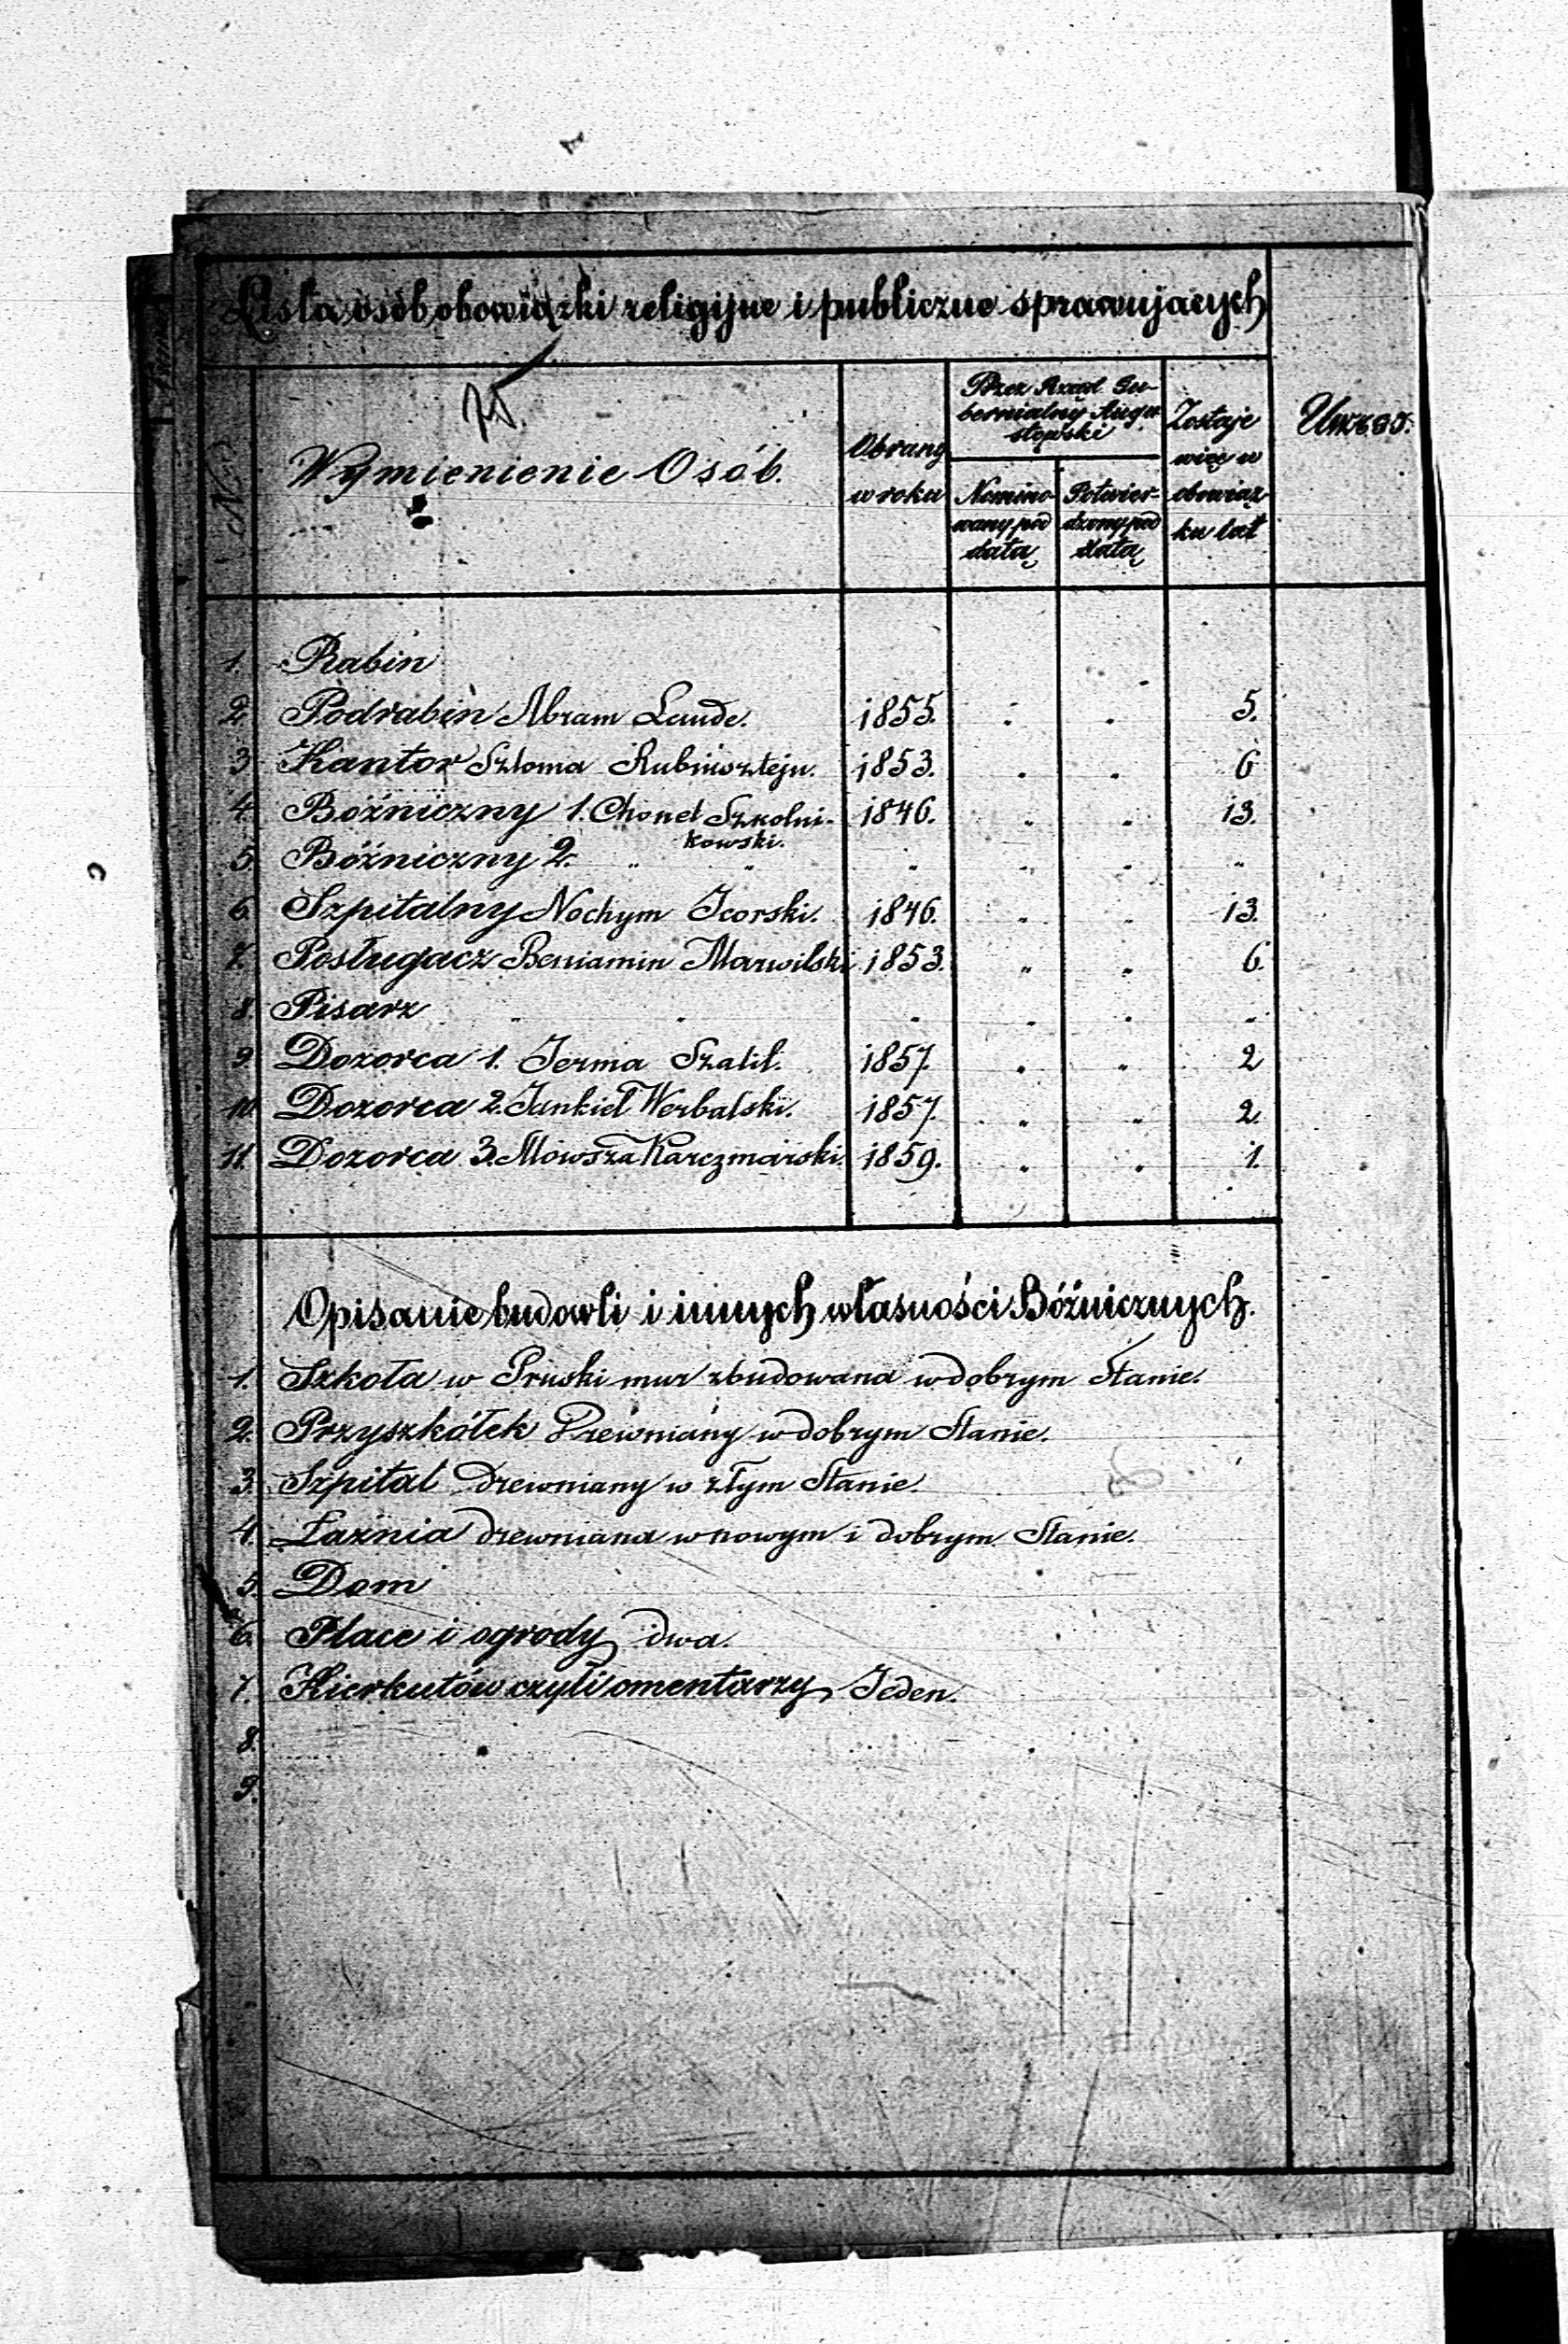 Lista osób obowiązki religijne i publiczne sprawujących
No
Wymienienie Osób.
Obrany w roku
Przez Rząd Gubernialny Augustowski
Nominowany pod datą
Potwierdzony pod datą
Zostaje więc w obowiązku lat
1. Rabin
2. Podrabin Abram Laude. 1855. " " 5.
3. Kantor Szloma Rubinsztejn. 1853. " " 6
4. Bóźniczny 1. Chonel Szkolni- 1846. " " 13.
kowski.
5. Bóźniczny 2. " " " " " "
6. Szpitalny Nochym Icorski. 1846. " " 13.
7. Posługacz Beniamin Marwilski 1853. " " 6.
8. Pisarz " " " " " "
9. Dozorca 1. Jerma Szalil. 1857. " " 2
10. Dozorca 2. Jankiel Werbalski. 1857. " " 2.
11. Dozorca 3. Mowsza Karczmarski. 1859. " " 1.
Opisanie budowli i innych własności Bóźnicznych.
1. Szkoła w Pruski mur zbudowana w dobrym Stanie.
2. Przyszkółek Drewniany w dobrym Stanie.
3. Szpital Drewniany w złym Stanie.
4. Łaźnia drewniana w nowym i dobrym Stanie.
5. Dom
6. Place i ogrody dwa.
7. Kierkutów czyli cmentarzy Jeden.
8.
9.